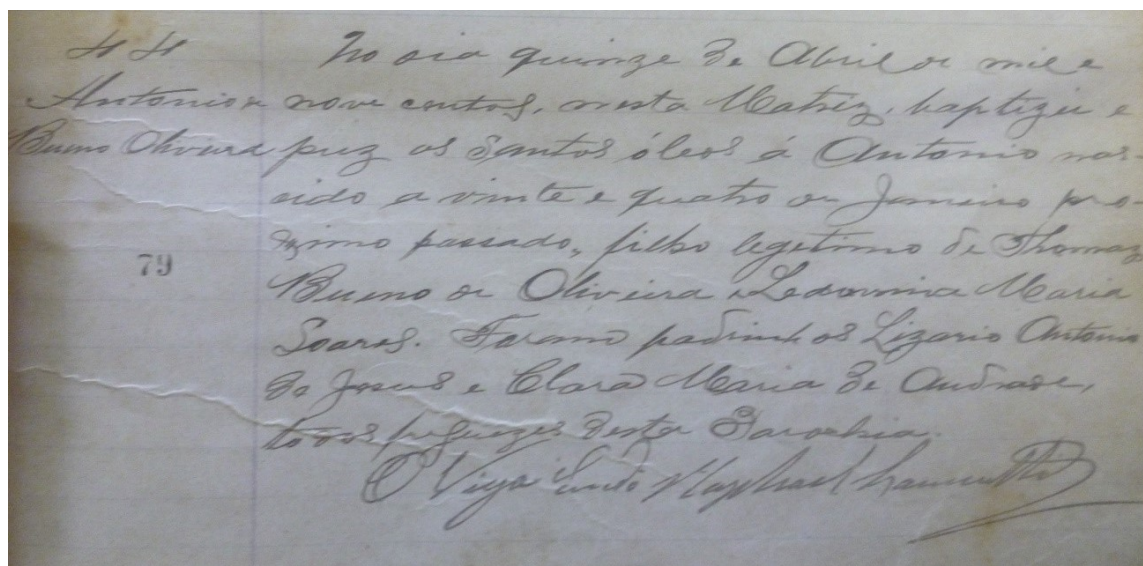 44
Antonio
Bueno Oliveira
79
No dia quinze de Abril de mil e
nove centos, nesta Matriz, baptizei e
puz os Santos óleos á Antonio nas-
cido a vinte e quatro de Janeiro pro-
ximo passado, filho legitimo de Thomaz
Bueno de Oliveira e Maria
Soares. Foram padrinhos Lizario Antonio
de Jesus e Clara Maria de Andrade,
todos freguezes desta Parochia.
O Vigo Raphael